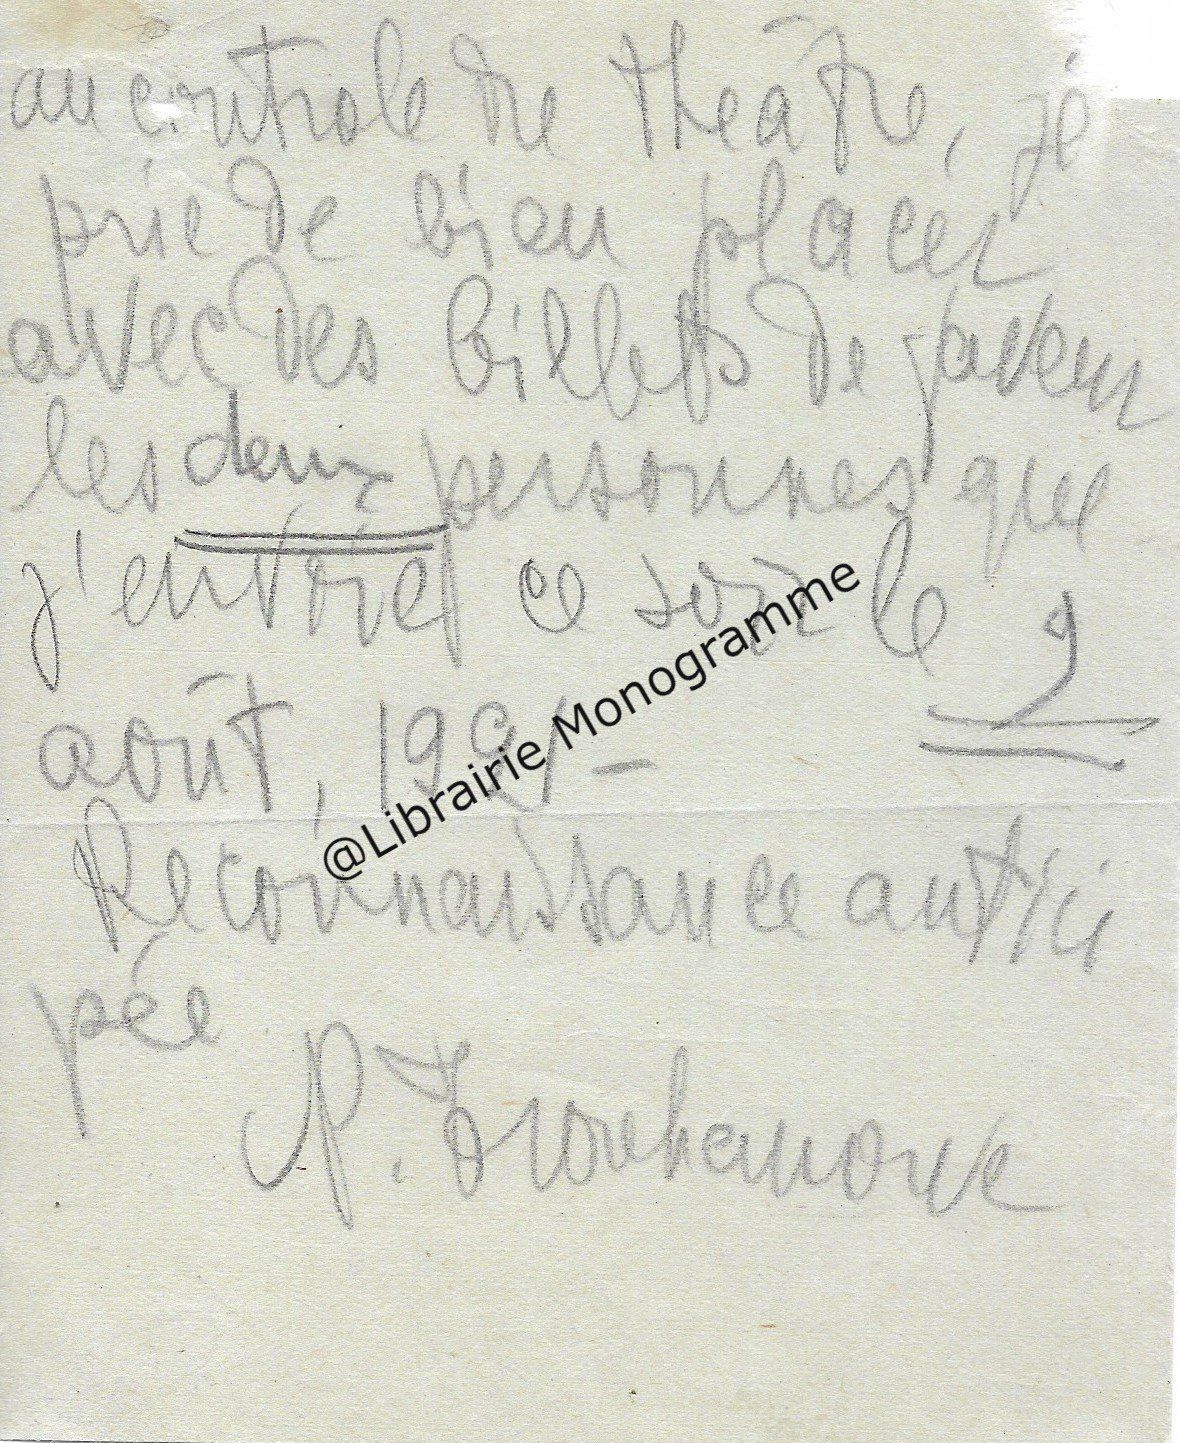 au controle de theâtre, je
prie de bien placer
avec des billets de faveur
les deux personnes que
j'envoie ce soir le 9
août, 19
Reconnaissance antici
pée
Trouhanowa
@Librairie Monogramme